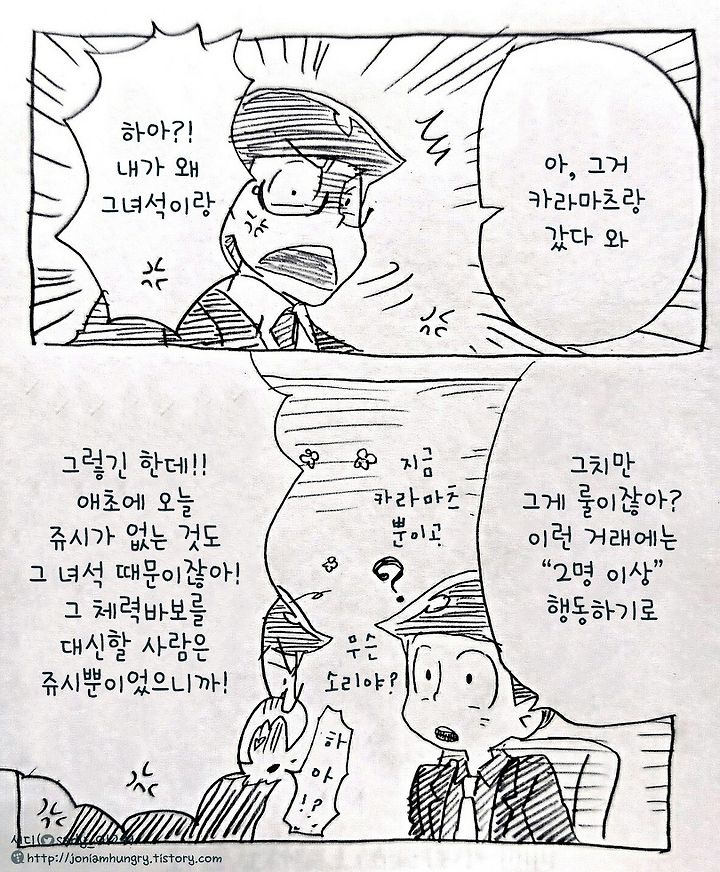 아, 그거
카라마츠랑
갔다 와
하아?!
내가 왜
그녀석이랑
그치만
그게 룰이잖아?
이런 거래에는
“2명 이상”
행동하기로
지금
카라마츠
뿐이고
?
무슨
소리야?
하
아
!?
그렇긴 한데!!
애초에 오늘
쥬시가 없는 것도
그 녀석 때문이잖아!
그 체력바보를
대신할 사람은
쥬시뿐이었으니까!
http://joniamhungry.tistory.com